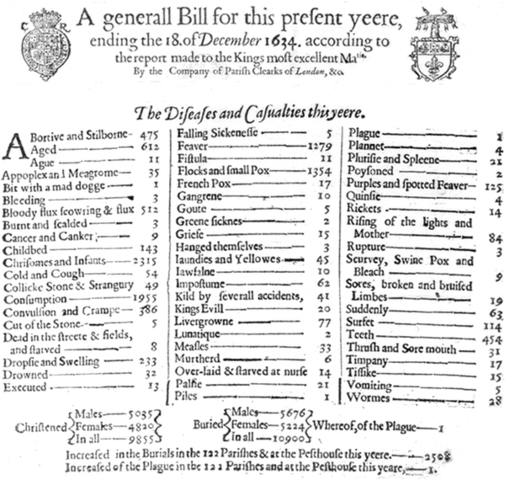 C R
A generall Bill for this present yeere,
ending the 18. of December 1634. according to
the report made to the Kings most excellent Ma^tie.
By the Company of Parish Clearks of London, &c.
The Diseases and Casualties this yeere.
Abortive and Stilborne 475
Aged 612
Ague 11
Appoplex and Meagrome 35
Bit with a mad dogge 1
Bleeding 3
Bloody flux scowring & flux 512
Burnt and scalded 3
Cancer and Canker 9
Childbed 143
Chrisomes and Infants 2315
Cold and Cough 54
Collicke Stone & Strangury 49
Consumption 1955
Convulsion and Crampe 386
Cut of the Stone 5
Dead in the streete & fields,
and starved 8
Dropsie and Swelling 233
Drowned 32
Executed 13
Falling Sickenesse 5
Feaver 1279
Fistula 11
Flocks and small Pox 1354
French Pox 17
Gangrene 10
Goute 5
Greene sicknes 2
Griefe 15
Hanged themselves 3
Iaundies and Yellowes 45
Iawfalne 10
Impostume 62
Kild by severall accidents, 41
Kings Evill 20
Livergrowne 77
Lunatique 2
Measles 33
Murtherd 6
Over-laid & starved at nurse 14
Palsie 21
Piles 1
Plague 1
Plannet 4
Plurisie and Spleene 21
Poysoned 2
Purples and spotted Feaver 125
Quinsie 4
Rickets 14
Rising of the lights and
Mother 84
Rupture 3
Scurvey, Swine Pox and
Bleach 9
Sores, broken and bruised
Limbes 19
Suddenly 63
Surfet 114
Teeth 454
Thrush and Sore mouth 31
Timpany 17
Tissike 15
Vomiting 5
Wormes 28
Christened Males 5035 Females 4820 In all 9855
Buried Males 5676 Females 5224 In all 10900 Whereof, of the Plague 1
Increased in the Burials in the 122 Parishes & at the Pesthouse this yeere. 2508
Increased of the Plague in the 122 Parishes and at the Pesthouse this yeare, 1.